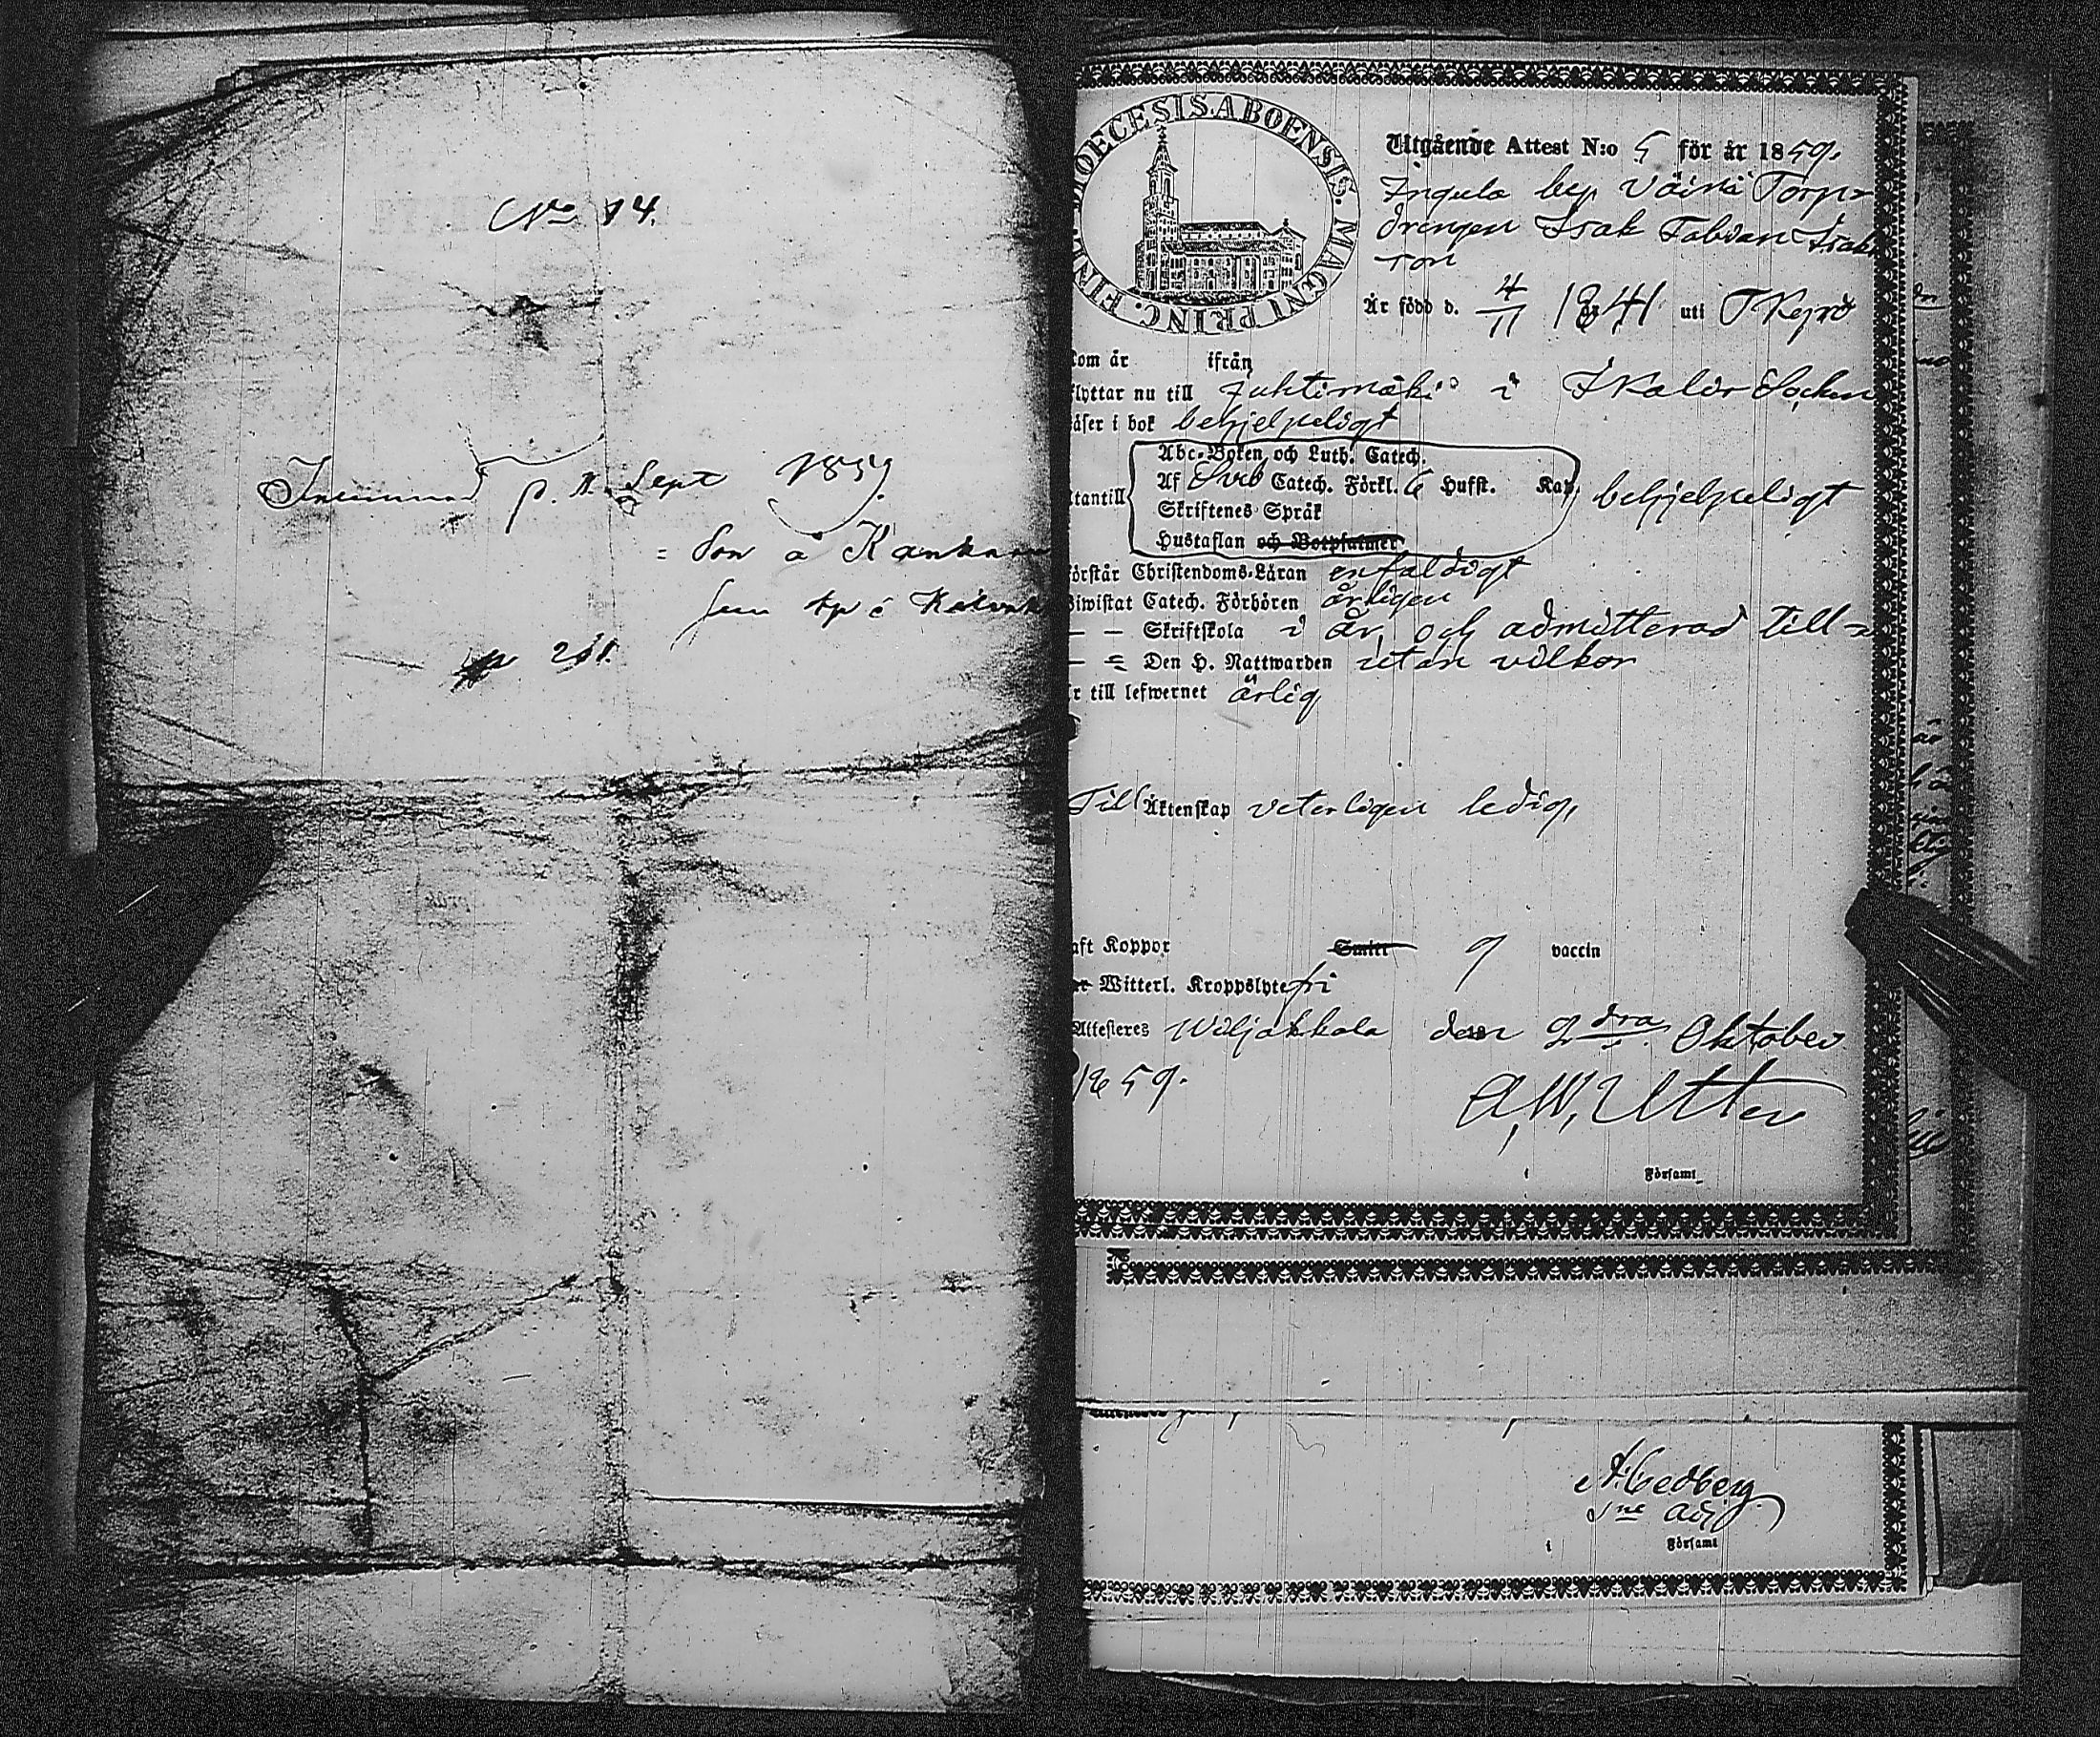 No 14.
p. 11 Sept 1859.
= Son å
p 261.
DIOECESIS ABOENSIS. MAGNI PRINC. FINL.
Utgående Attest N:o 5 för år 1859.
Ingula by, Väini Torp=
drengen Isak Fabian Isak
son
Är född d. 4/11 1841 uti Tkyrö
om är ifrån
lyttar nu till Juhtimäki i Ikalis Socken
äser i bok behjelpeligt
Abc-Boken och Luth. Catech.
Af Sveb Catech. Förkl. 6 Hufst. Kap.
tantill behjelpeligt
Skriftenes Språk
Hustaflan och Botpsalmer
örstår Christendoms-Läran enfaldigt
iwistat Catech. Förhören årligen
— — Skriftskola i år, och admitterad till=
— = Den H. Nattwarden utan vilkor
r till lefwernet ärlig
Till Äktenskap veterligen ledig,
aft Koppor Smitt vaccin
Witterl. Kroppslyte fri
Attesteres Wiljakkala den 2dra Oktober
1859.
A. W. Utter
i Församl.
A. Cedberg
i Församl